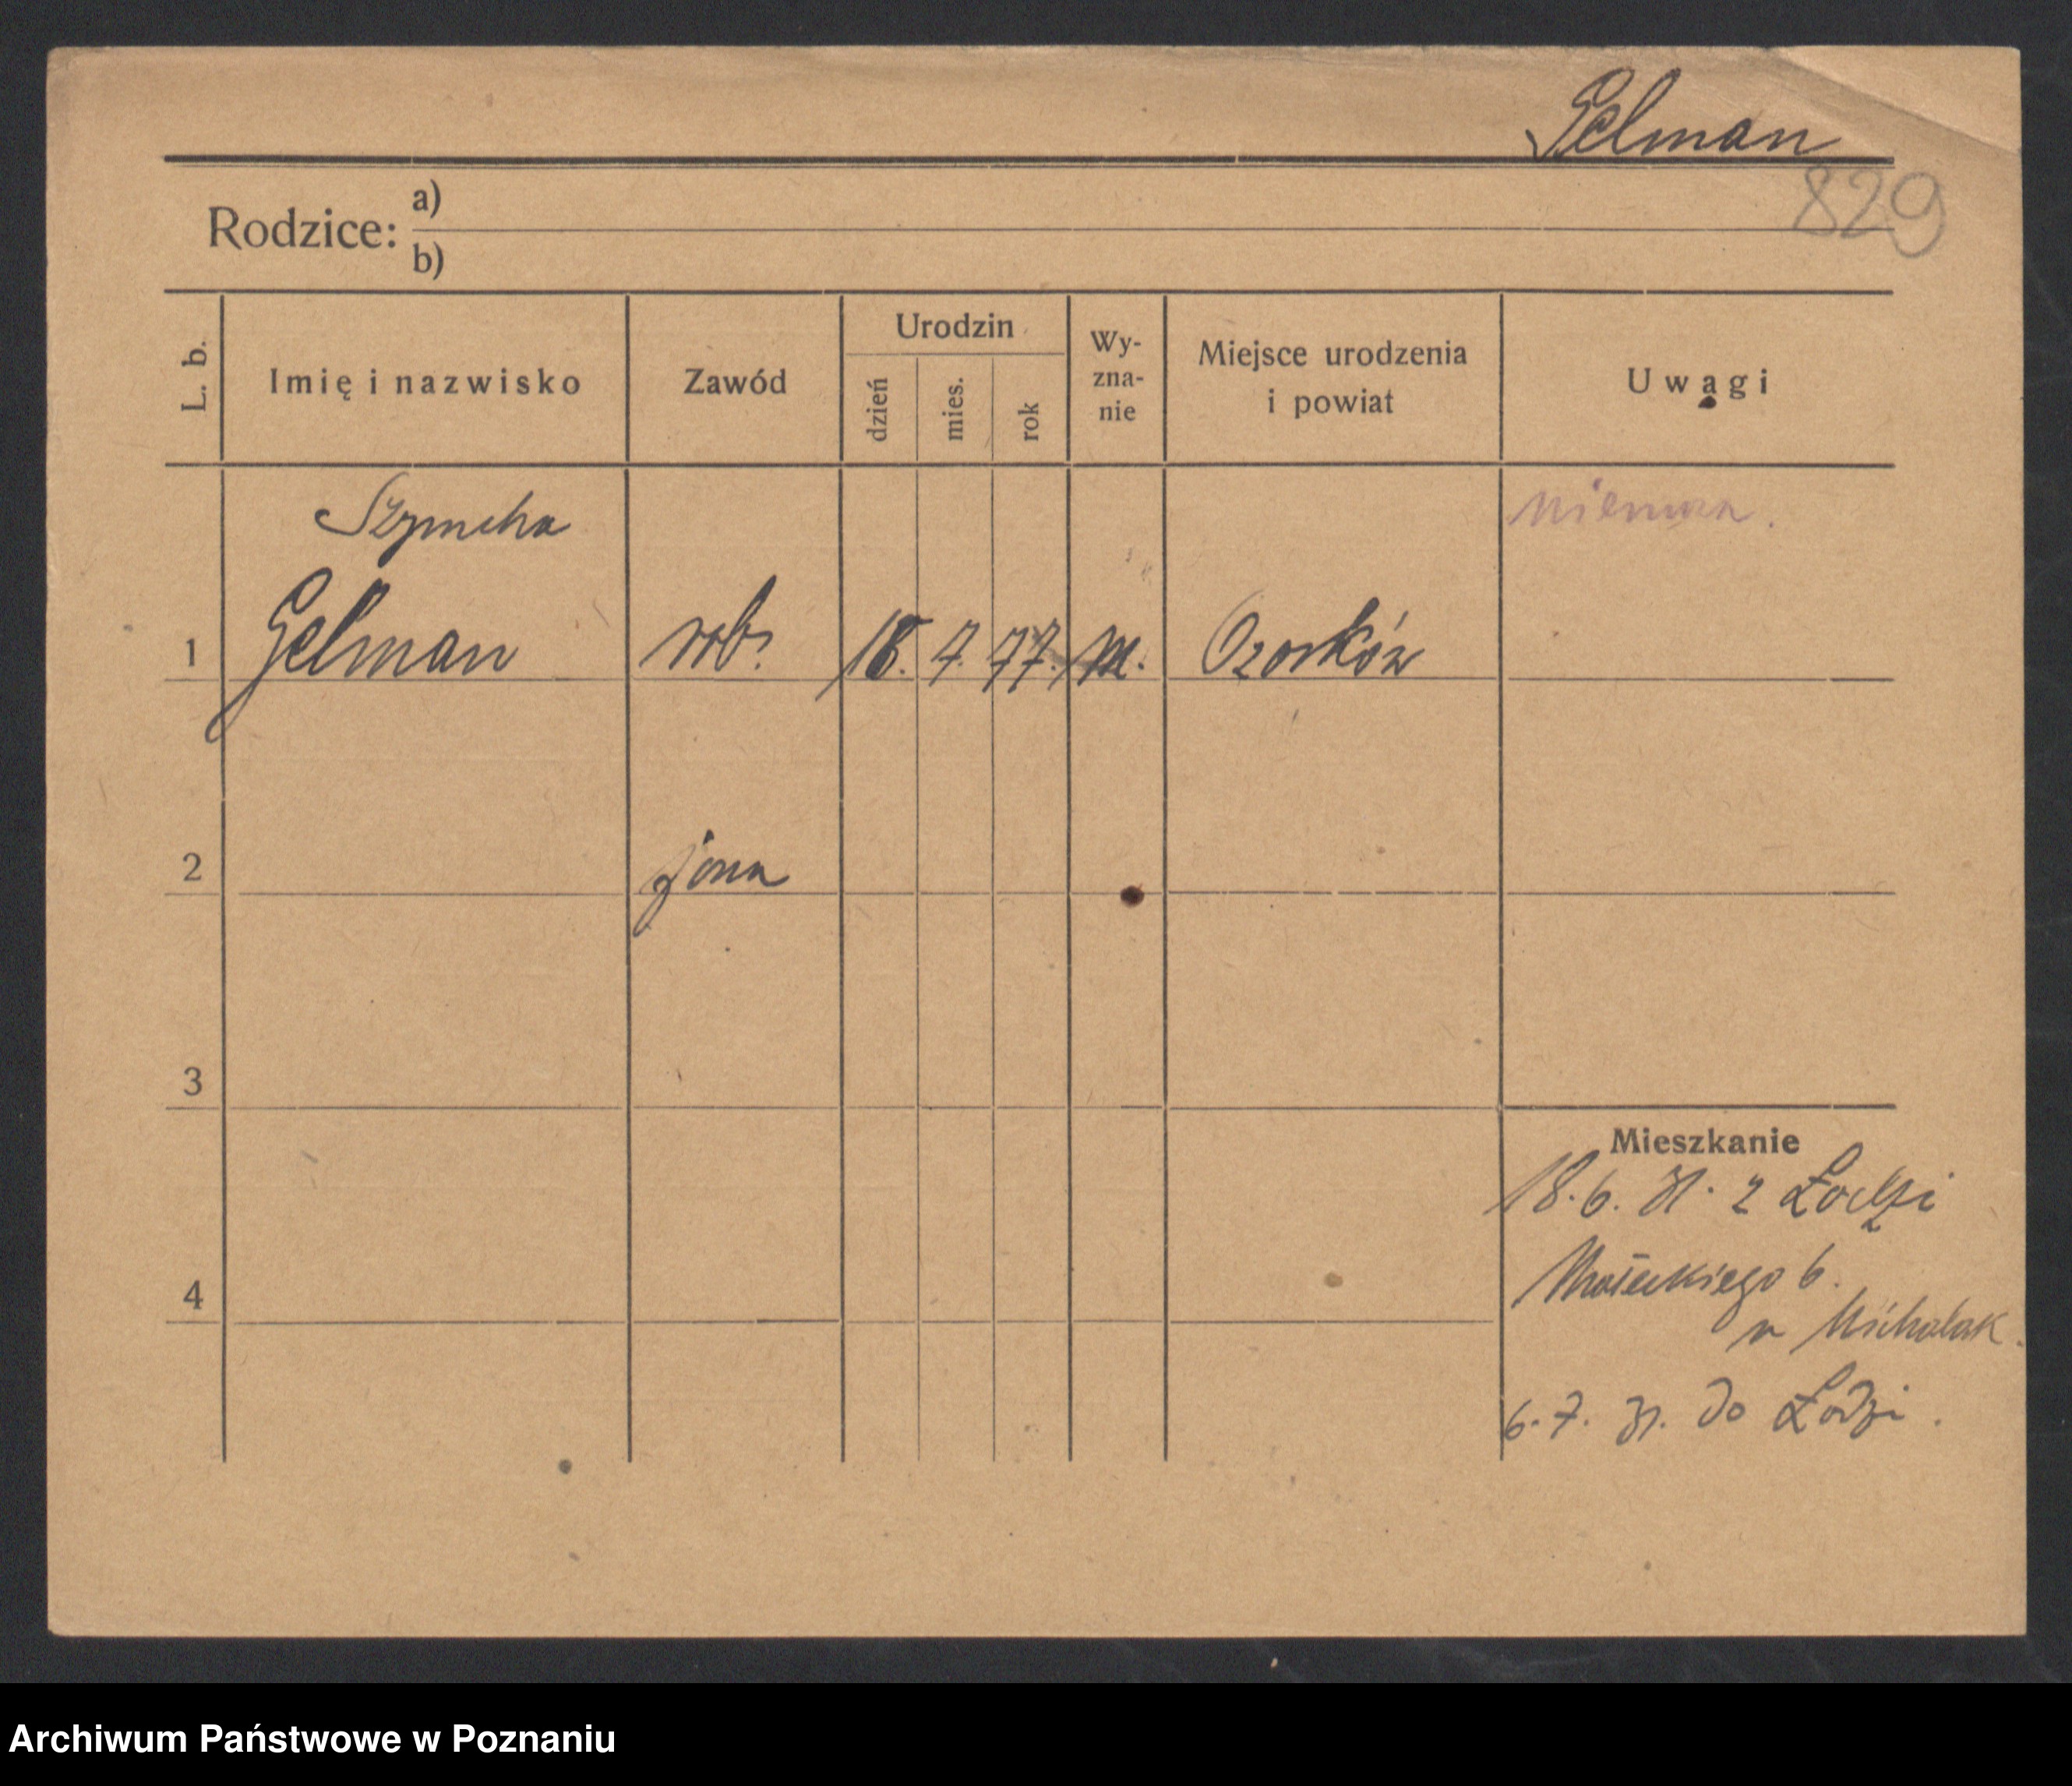 Gelman
829
Rodzice: a)
b)
L. b. Imię i nazwisko Zawód Urodzin dzień mies. rok Wy-zna-nie Miejsce urodzenia i powiat Uwagi
Szymcha
1 Gelman rob. 18. 7. 77. m. Ozorków
2 żona
3
Mieszkanie
18. 6. 31. z Łodzi
4
6.
u Michalak.
6. 7. 31. do Łodzi.
Archiwum Państwowe w Poznaniu